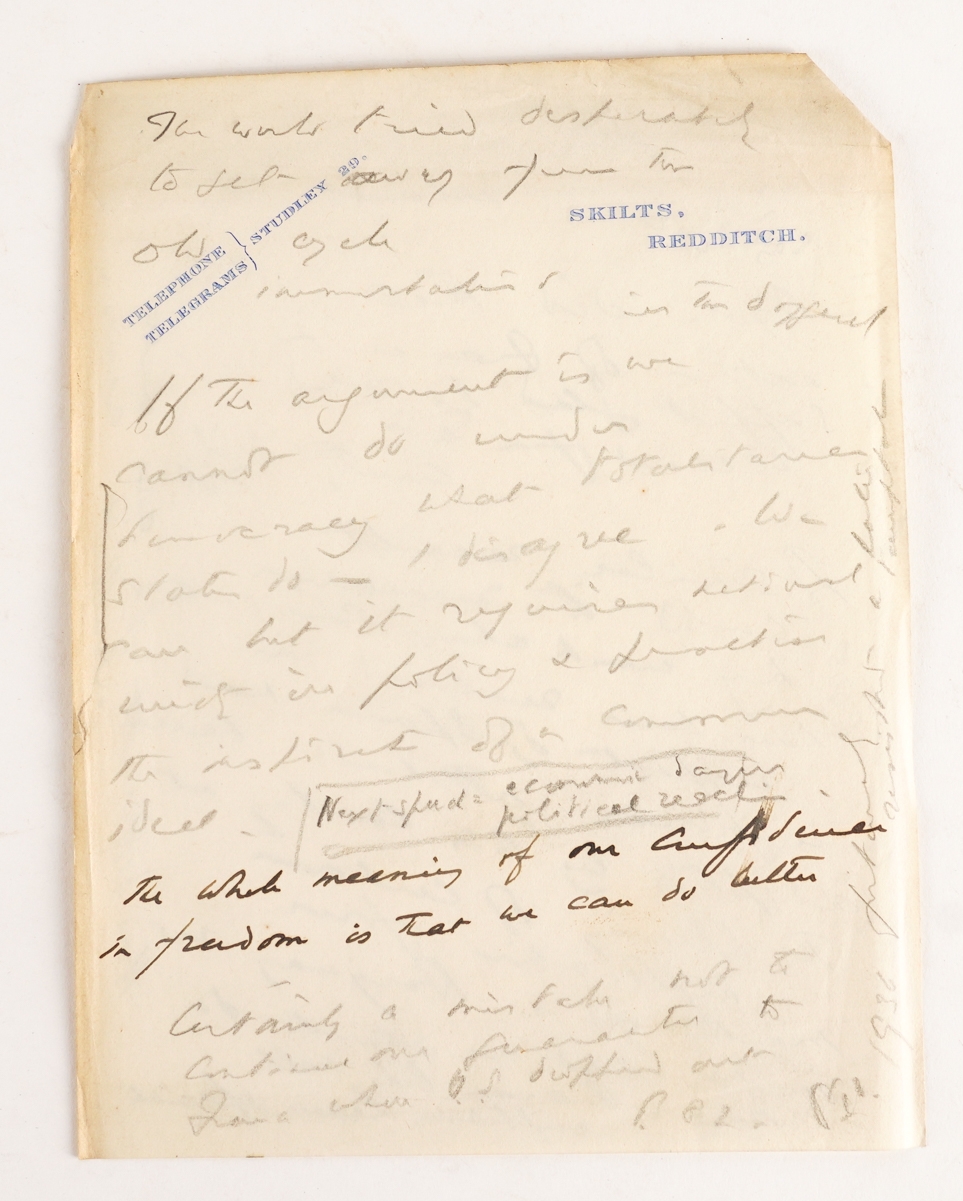 The world tried desperately
to get away from the
old cycle
TELEPHONE
TELEGRAMS } STUDLEY 29.
SKILTS,
REDDITCH.
in the
If the argument is we
cannot do under
democracy what totalitarian
states do — I disagree. We
can but it requires national
unity in policy & function
the instinct of a common
ideal.
Next speech = economic
political
the whole meaning of our confidence
in freedom is that we can do better
Certainly a mistake not to
continue our guarantee to
France when U.S dropped out
P. 82.
1936